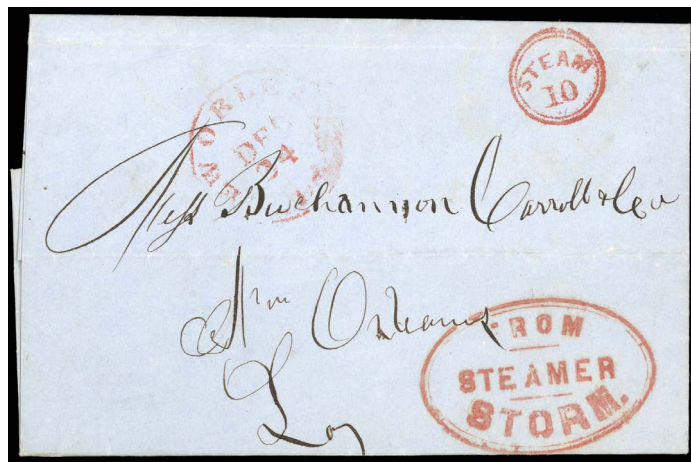 STEAM
10
N ORLE
DEC
24
Messs Buchannon Carroll & Co
New Orleans
La
FROM
STEAMER
STORM.